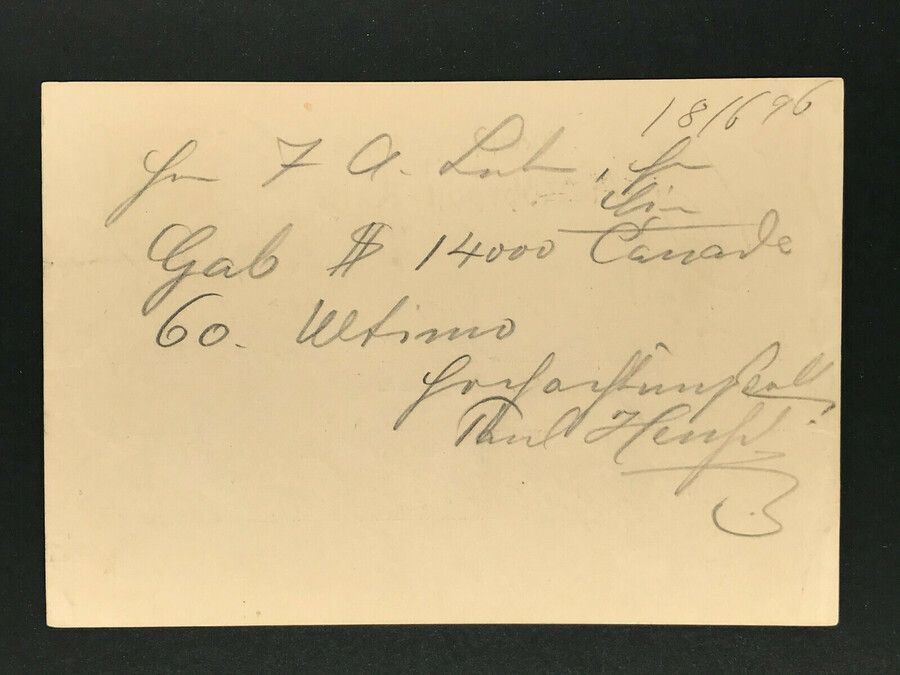 18/6 96
Hrn F A. Lub , Hr
Gab $ 14000 Canada
60. Ultimo
Hochachtungsvoll
Paul